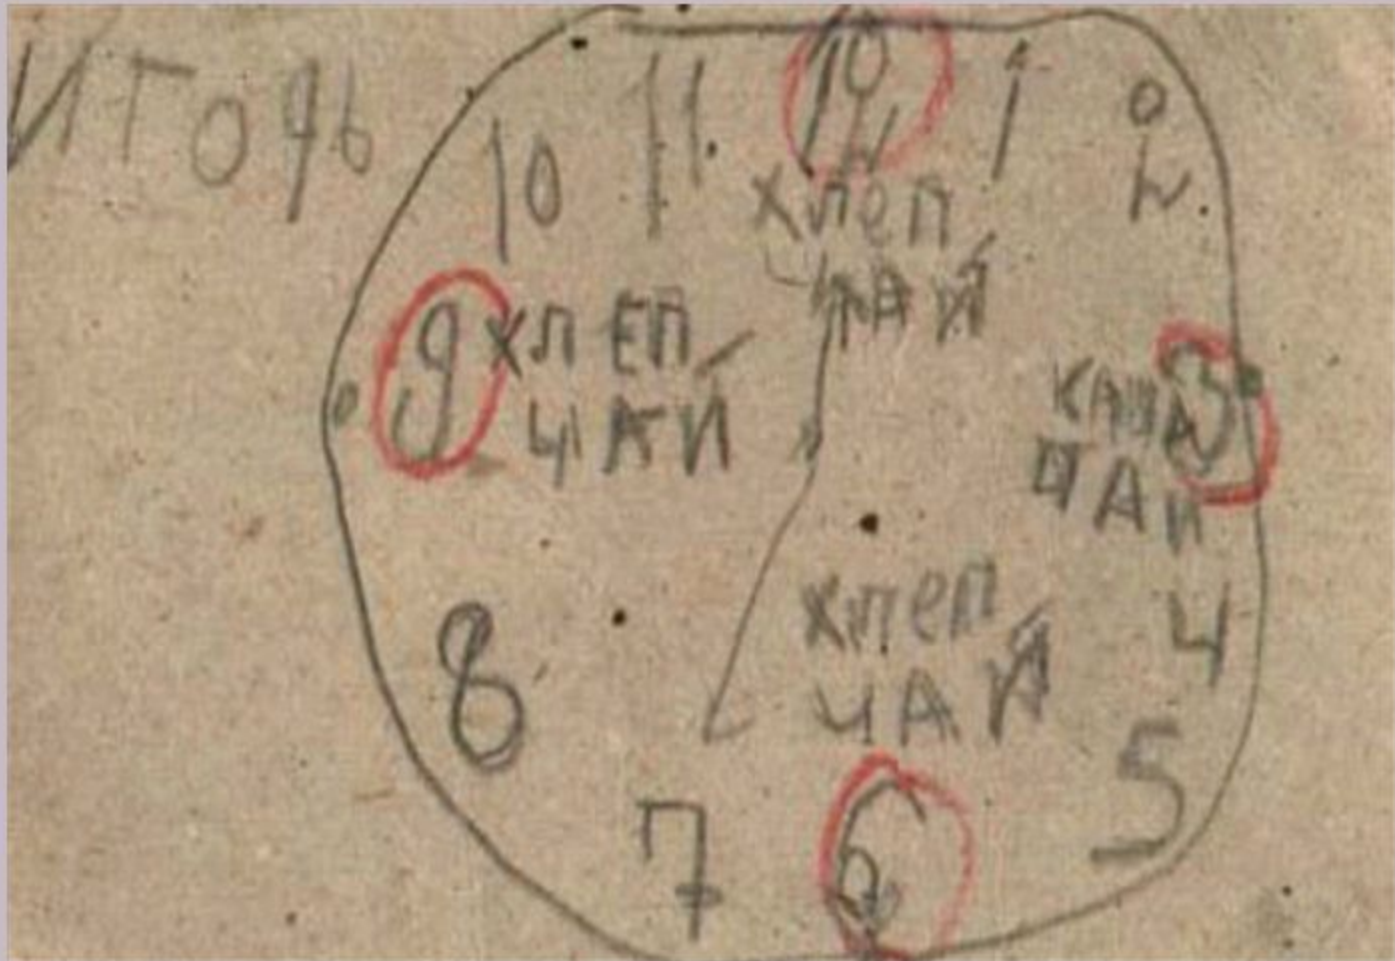 ИГОРЬ
12
11
1
10
2
ХЛеП
ЧАЙ
9
ХЛЕП
ЧАЙ
3
КАША
ЧАЙ
ХЛеП
ЧАЙ
4
8
5
7
6